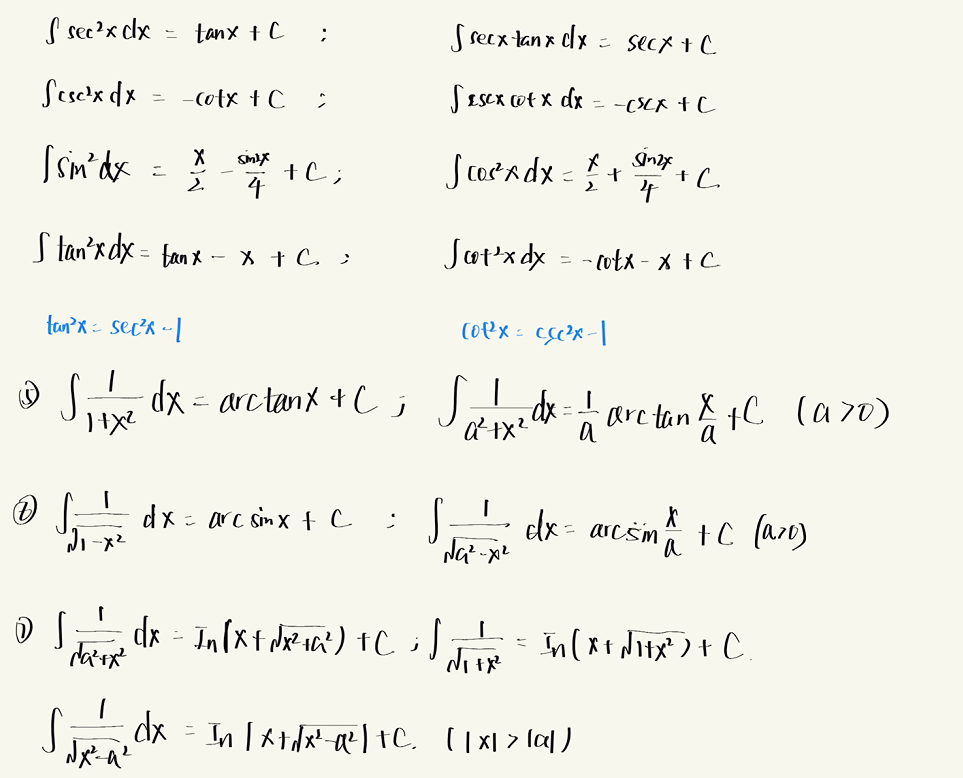 ∫ sec²x dx = tanx + C ; ∫ secx tanx dx = secx + C
∫ csc²x dx = -cotx + C ; ∫ cscx cotx dx = -cscx + C
∫ sin² dx = x/2 - sin2x/4 + C ; ∫ cos²x dx = x/2 + sin2x/4 + C.
∫ tan²x dx = tanx - x + C. ; ∫ cot²x dx = -cotx - x + C
tan²x = sec²x - 1 cot²x = csc²x - 1
⑤ ∫ 1/(1+x²) dx = arctanx + C ; ∫ 1/(a²+x²) dx = 1/a arctan x/a + C (a>0)
⑥ ∫ 1/√(1-x²) dx = arcsinx + C ; ∫ 1/√(a²-x²) dx = arcsin x/a + C (a>0)
⑦ ∫ 1/√(a²+x²) dx = In(x+√(x²+a²)) + C ; ∫ 1/√(1+x²) = In(x+√(1+x²)) + C.
∫ 1/√(x²-a²) dx = In|x+√(x²-a²)| + C. (|x| > |a|)